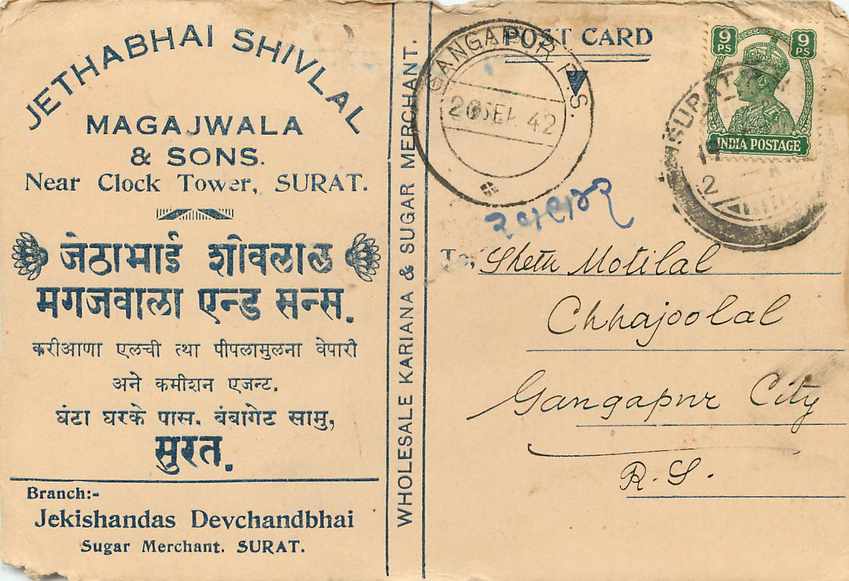 JETHABHAI SHIVLAL
MAGAJWALA
& SONS.
Near Clock Tower, SURAT.
जेठाभाई शीवलाल
मगजवाला एन्ड सन्स.
करीआणा एलची तथा पीपलामुलना वेपारी
अने कमीशन एजन्ट.
घंटा घरके पास, बंबागेट सामु,
सुरत.
Branch:-
Jekishandas Devchandbhai
Sugar Merchant. SURAT.
WHOLESALE KARIANA & SUGAR MERCHANT.
POST CARD
9 9
PS PS
INDIA POSTAGE
GANGAPUR R.S.
42
SURAT
To,
Sheth Motilal
Chhajoolal
Gangapur City
R. S.